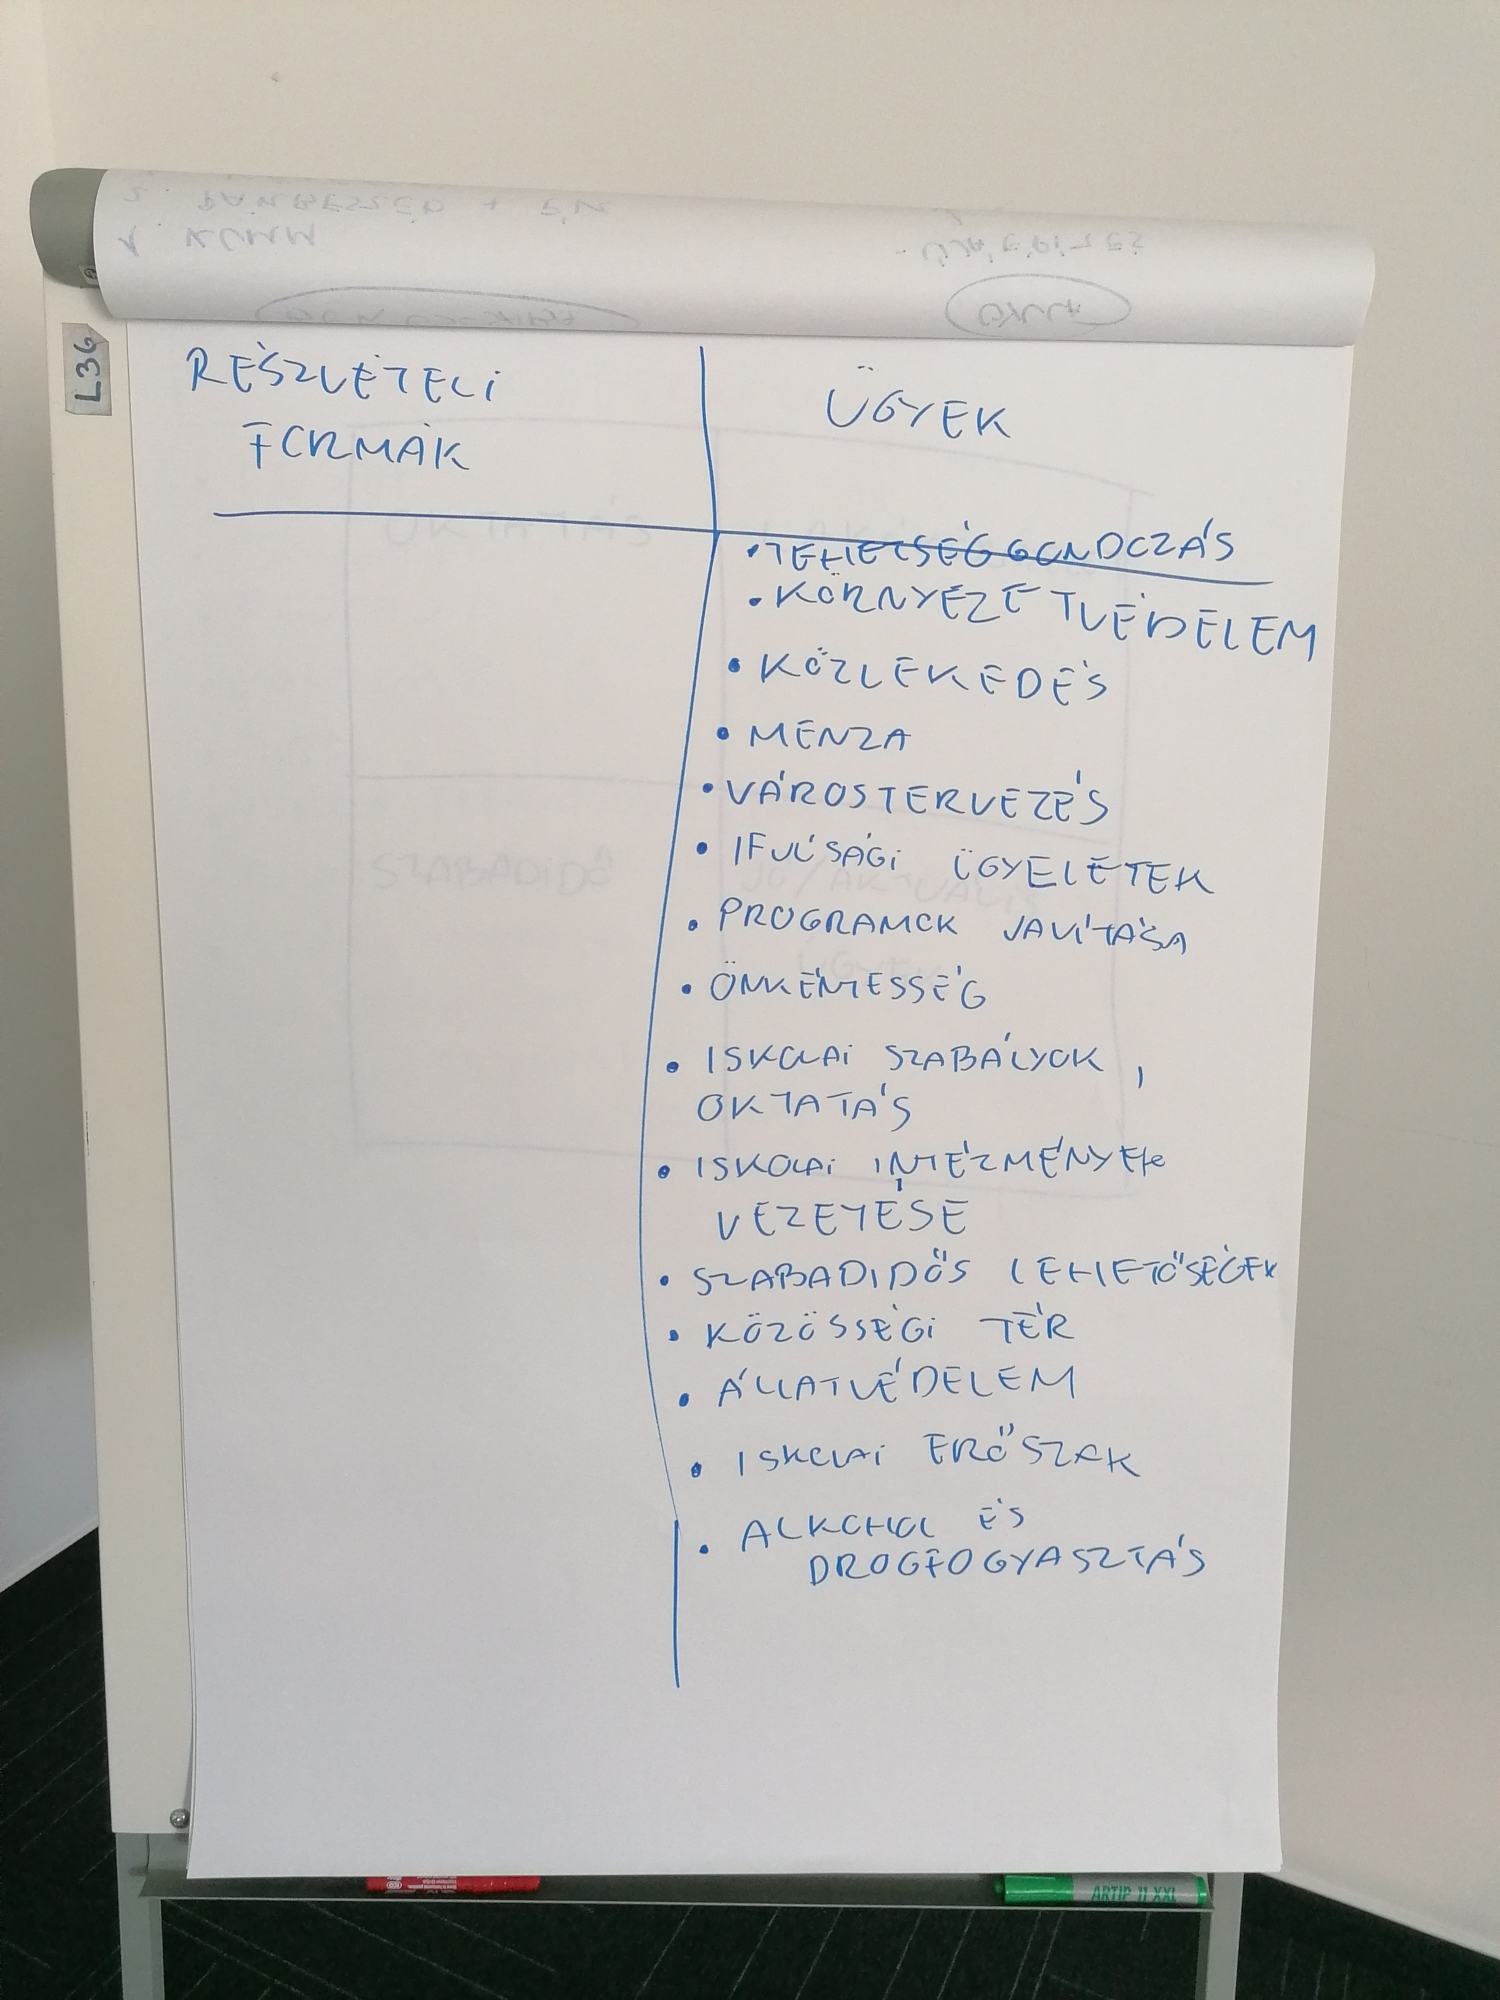 L36
RÉSZVÉTELI
FORMÁK
ÜGYEK
• TEHETSÉGGONDOZÁS
• KÖRNYEZETVÉDELEM
• KÖZLEKEDÉS
• MENZA
• VÁROSTERVEZÉS
• IFJÚSÁGI ÜGYELETEK
• PROGRAMOK JAVÍTÁSA
• ÖNKÉNTESSÉG
• ISKOLAI SZABÁLYOK,
OKTATÁS
• ISKOLAI INTÉZMÉNYEK
VEZETÉSE
• SZABADIDŐS LEHETŐSÉGEK
• KÖZÖSSÉGI TÉR
• ÁLLATVÉDELEM
• ISKOLAI ERŐSZAK
• ALKOHOL ÉS
DROGFOGYASZTÁS
OKTATÁS
SZABADIDŐ
JÓ/AKTUÁLIS
ÜGYEK
ARTIP 11 XXL